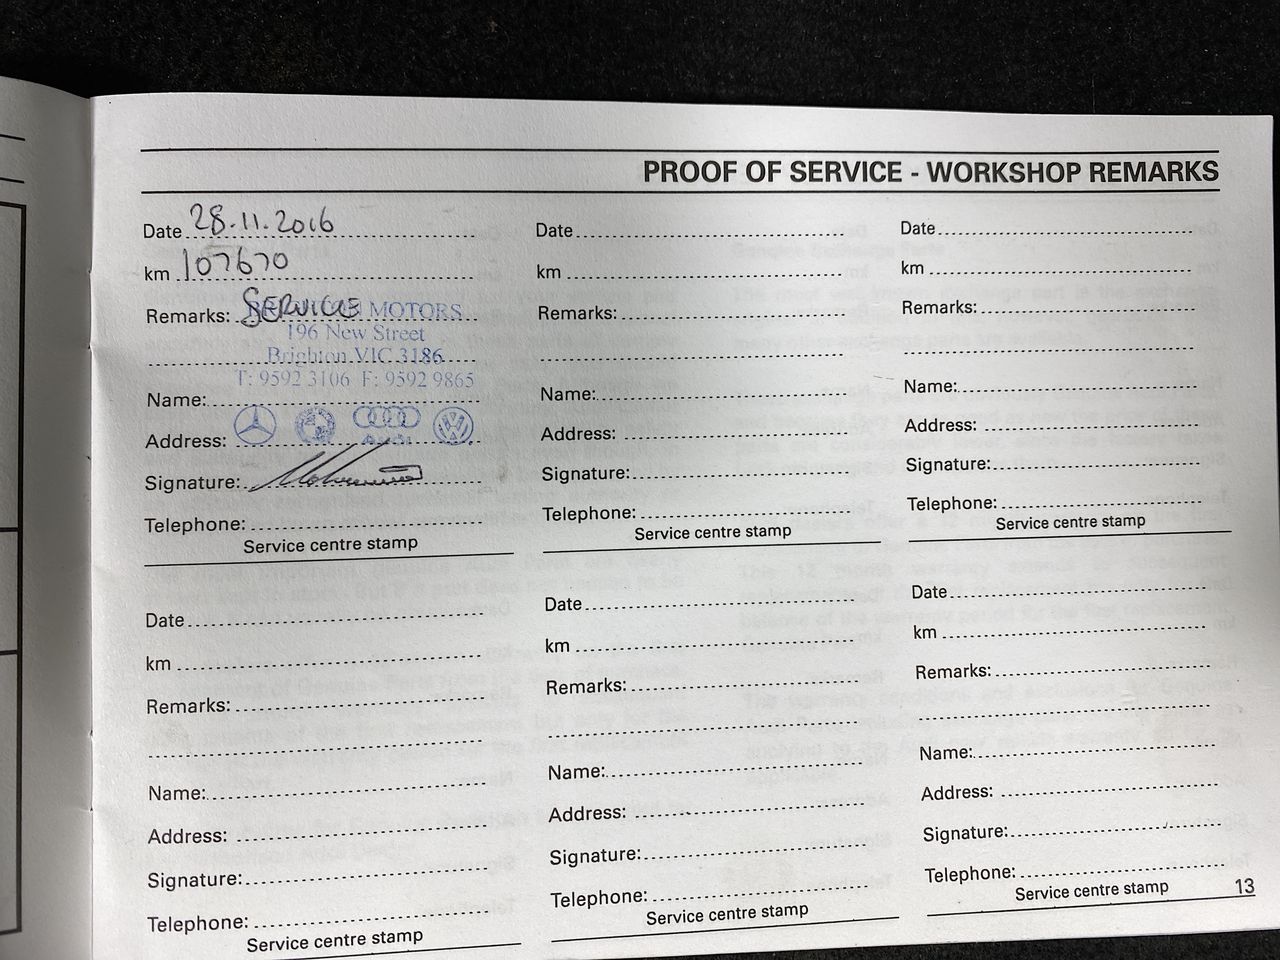 PROOF OF SERVICE - WORKSHOP REMARKS
Date 28.11.2016
km 107670
Remarks: SERVICE
MOTORS
196 New Street
Brighton VIC 3186
T: 9592 3106 F: 9592 9865
Name:
Address:
Audi
Signature:
Telephone:
Service centre stamp
Date
km
Remarks:
Name:
Address:
Signature:
Telephone:
Service centre stamp
Date
km
Remarks:
Name:
Address:
Signature:
Telephone:
Service centre stamp
Date
km
Remarks:
Name:
Address:
Signature:
Telephone:
Service centre stamp
Date
km
Remarks:
Name:
Address:
Signature:
Telephone:
Service centre stamp
Date
km
Remarks:
Name:
Address:
Signature:
Telephone:
Service centre stamp
13